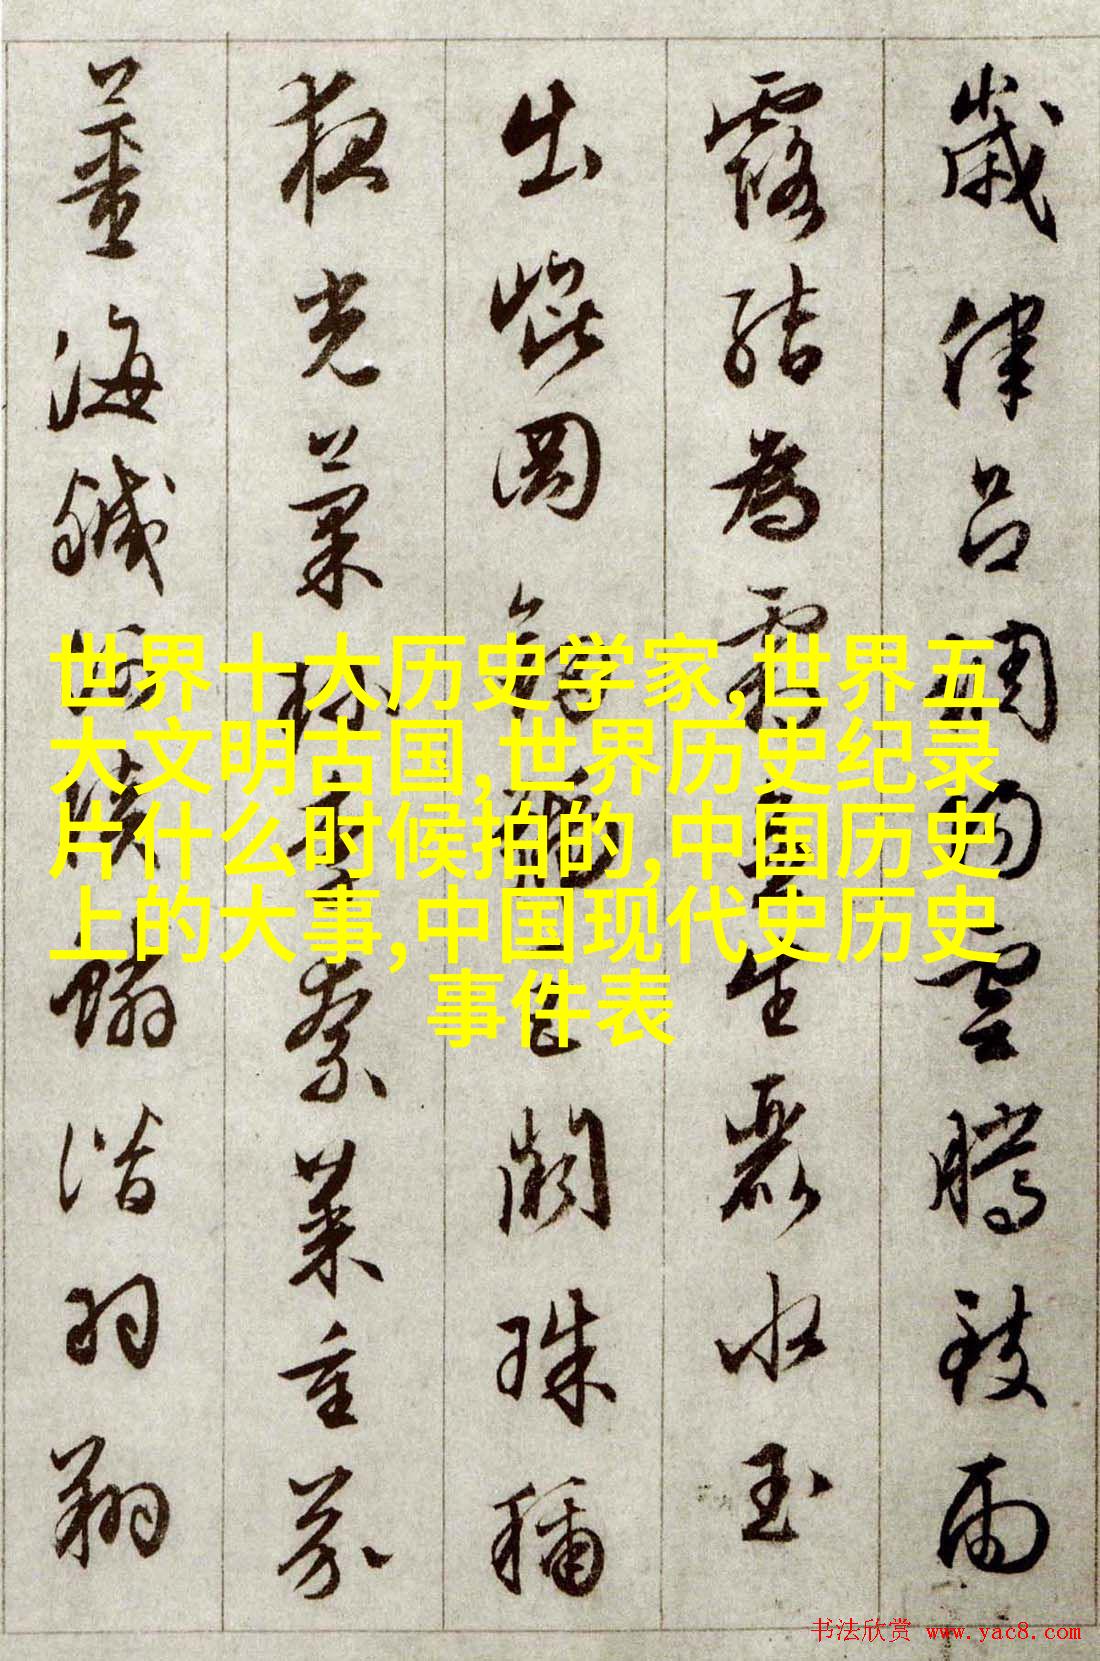 歲律呂調陽雲騰致雨
露結為霜金生麗水玉
出崐岡劍號巨闕珠稱
夜光菓珍李柰菜重芥
薑海鹹河淡鱗潛羽翔
世界十大历史学家,世界五
大文明古国,世界历史纪录
片什么时候拍的,中国历史
上的大事,中国现代史历史
事件表
书法欣赏 www.yac8.com